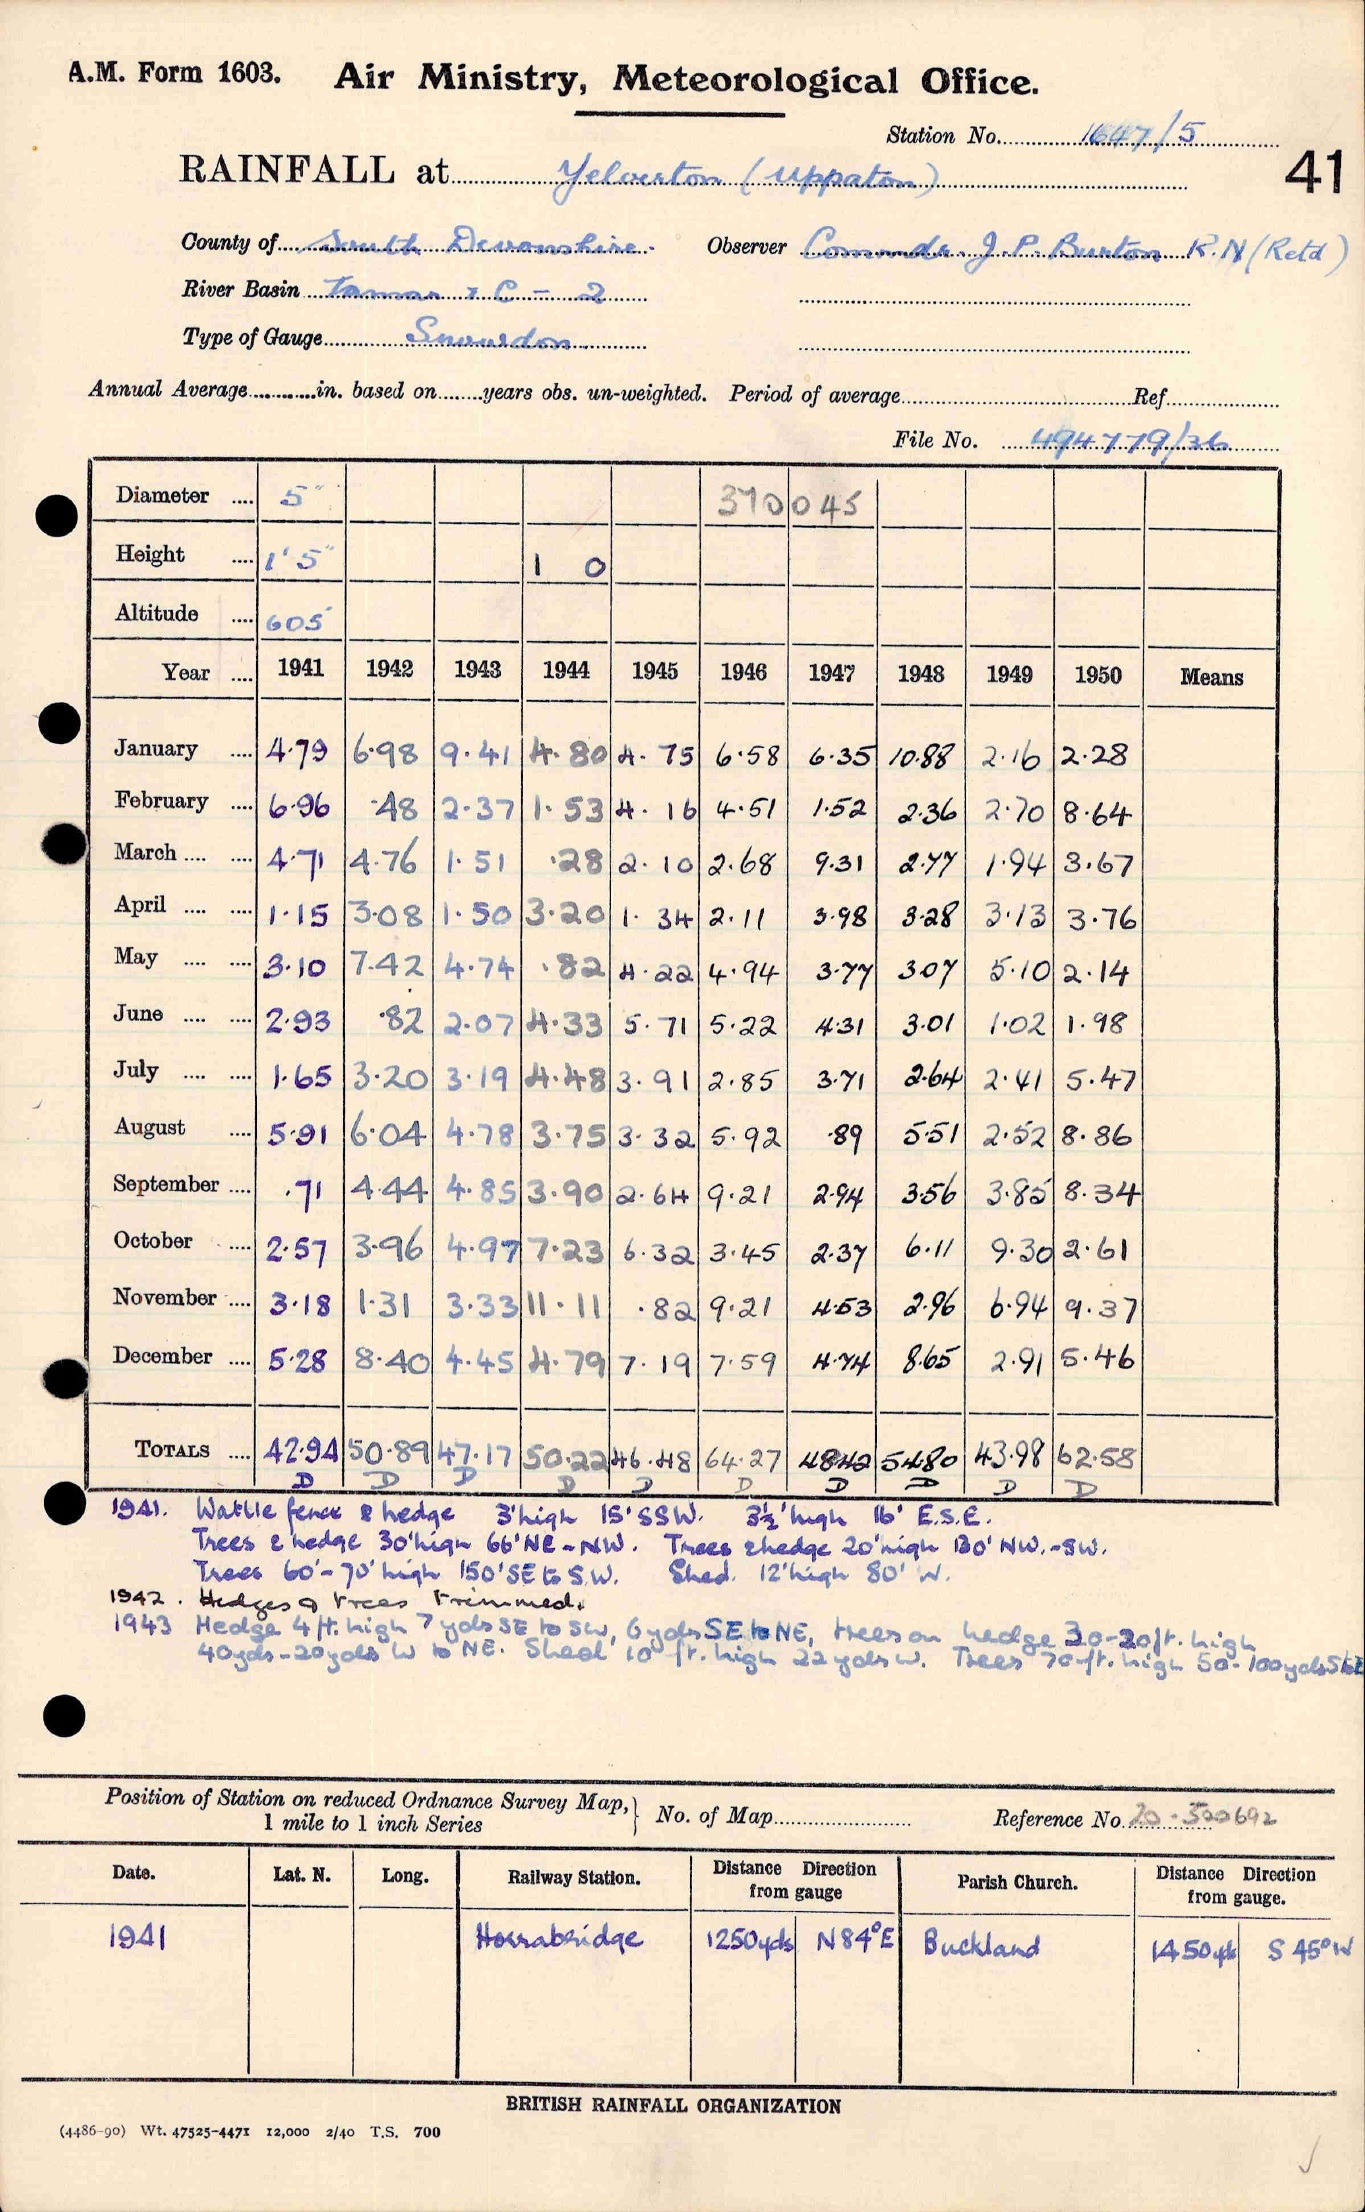 A.M. Form 1603. Air Ministry, Meteorological Office.
Station No. 1647/5
41
RAINFALL at Yelverton (Uppaton)
County of South Devonshire. Observer Commdr. J. P. Burton R.N (Retd)
River Basin Tamar & C - 2
Type of Gauge Snowdon
Annual Average in. based on years obs. un-weighted. Period of average Ref.
File No. 494779/36
Diameter 5" 370045
Height 1' 5" 1 0
Altitude 605
Year 1941 1942 1943 1944 1945 1946 1947 1948 1949 1950 Means
January 4.79 6.98 9.41 4.80 4.75 6.58 6.35 10.88 2.16 2.28
February 6.96 .48 2.37 1.53 4.16 4.51 1.52 2.36 2.70 8.64
March 4.71 4.76 1.51 .28 2.10 2.68 9.31 2.77 1.94 3.67
April 1.15 3.08 1.50 3.20 1.34 2.11 3.98 3.28 3.13 3.76
May 3.10 7.42 4.74 .82 4.22 4.94 3.77 3.07 5.10 2.14
June 2.93 .82 2.07 4.33 5.71 5.22 4.31 3.01 1.02 1.98
July 1.65 3.20 3.19 4.48 3.91 2.85 3.71 2.64 2.41 5.47
August 5.91 6.04 4.78 3.75 3.32 5.92 .89 5.51 2.52 8.86
September .71 4.44 4.85 3.90 2.64 9.21 2.94 3.56 3.85 8.34
October 2.57 3.96 4.97 7.23 6.32 3.45 2.37 6.11 9.30 2.61
November 3.18 1.31 3.33 11.11 .82 9.21 4.53 2.96 6.94 9.37
December 5.28 8.40 4.45 4.79 7.19 7.59 4.74 8.65 2.91 5.46
TOTALS 42.94 50.89 47.17 50.22 46.48 64.27 48.42 54.80 43.98 62.58
D D D D D D D D D D
1941. Wattle fence & hedge 3' high 15' SSW. 3½' high 16' E.S.E.
Trees & hedge 30' high 66' NE-NW. Trees & hedge 20' high 130' NW.-SW.
Trees 60'-70' high 150' SE to S.W. Shed. 12' high 80' W.
1942. Hedges & trees trimmed.
1943 Hedge 4 ft. high 7 yds SE to SW, 6 yds SE to NE, trees on hedge 30-20 ft. high
40yds-20yds W to NE. Shed 10 ft. high 22 yds W. Trees 70 ft. high 50-100yds
Position of Station on reduced Ordnance Survey Map, No. of Map Reference No. 20-500692
1 mile to 1 inch Series
Date. Lat. N. Long. Railway Station. Distance Direction from gauge Parish Church. Distance Direction from gauge.
1941 Horrabridge 1250yds N84°E Buckland 1450yds S 45° W
BRITISH RAINFALL ORGANIZATION
(4486-90) Wt. 47525-4471 12,000 2/40 T.S. 700